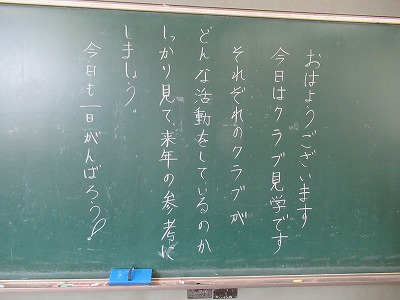 おはようございます
今日はクラブ見学です
それぞれのクラブが
どんな活動をしているのか
しっかり見て、来年の参考に
しましょう。
今日も一日がんばろう!